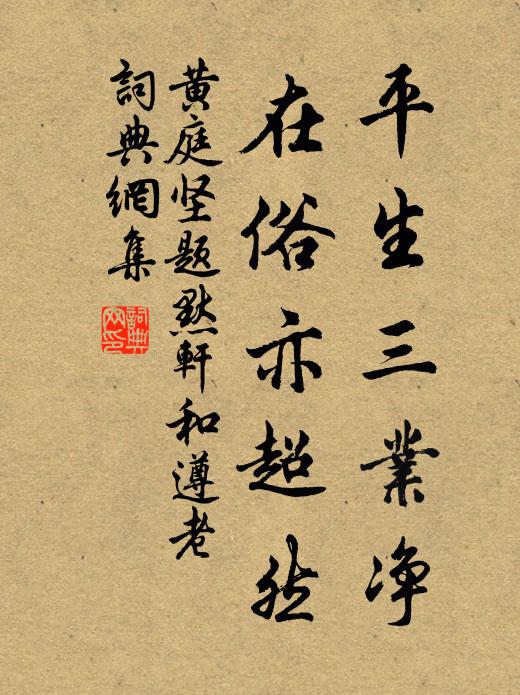 平生三業净
在俗亦超然
黄庭坚題默軒和遵老
詞典網集
詞典网印